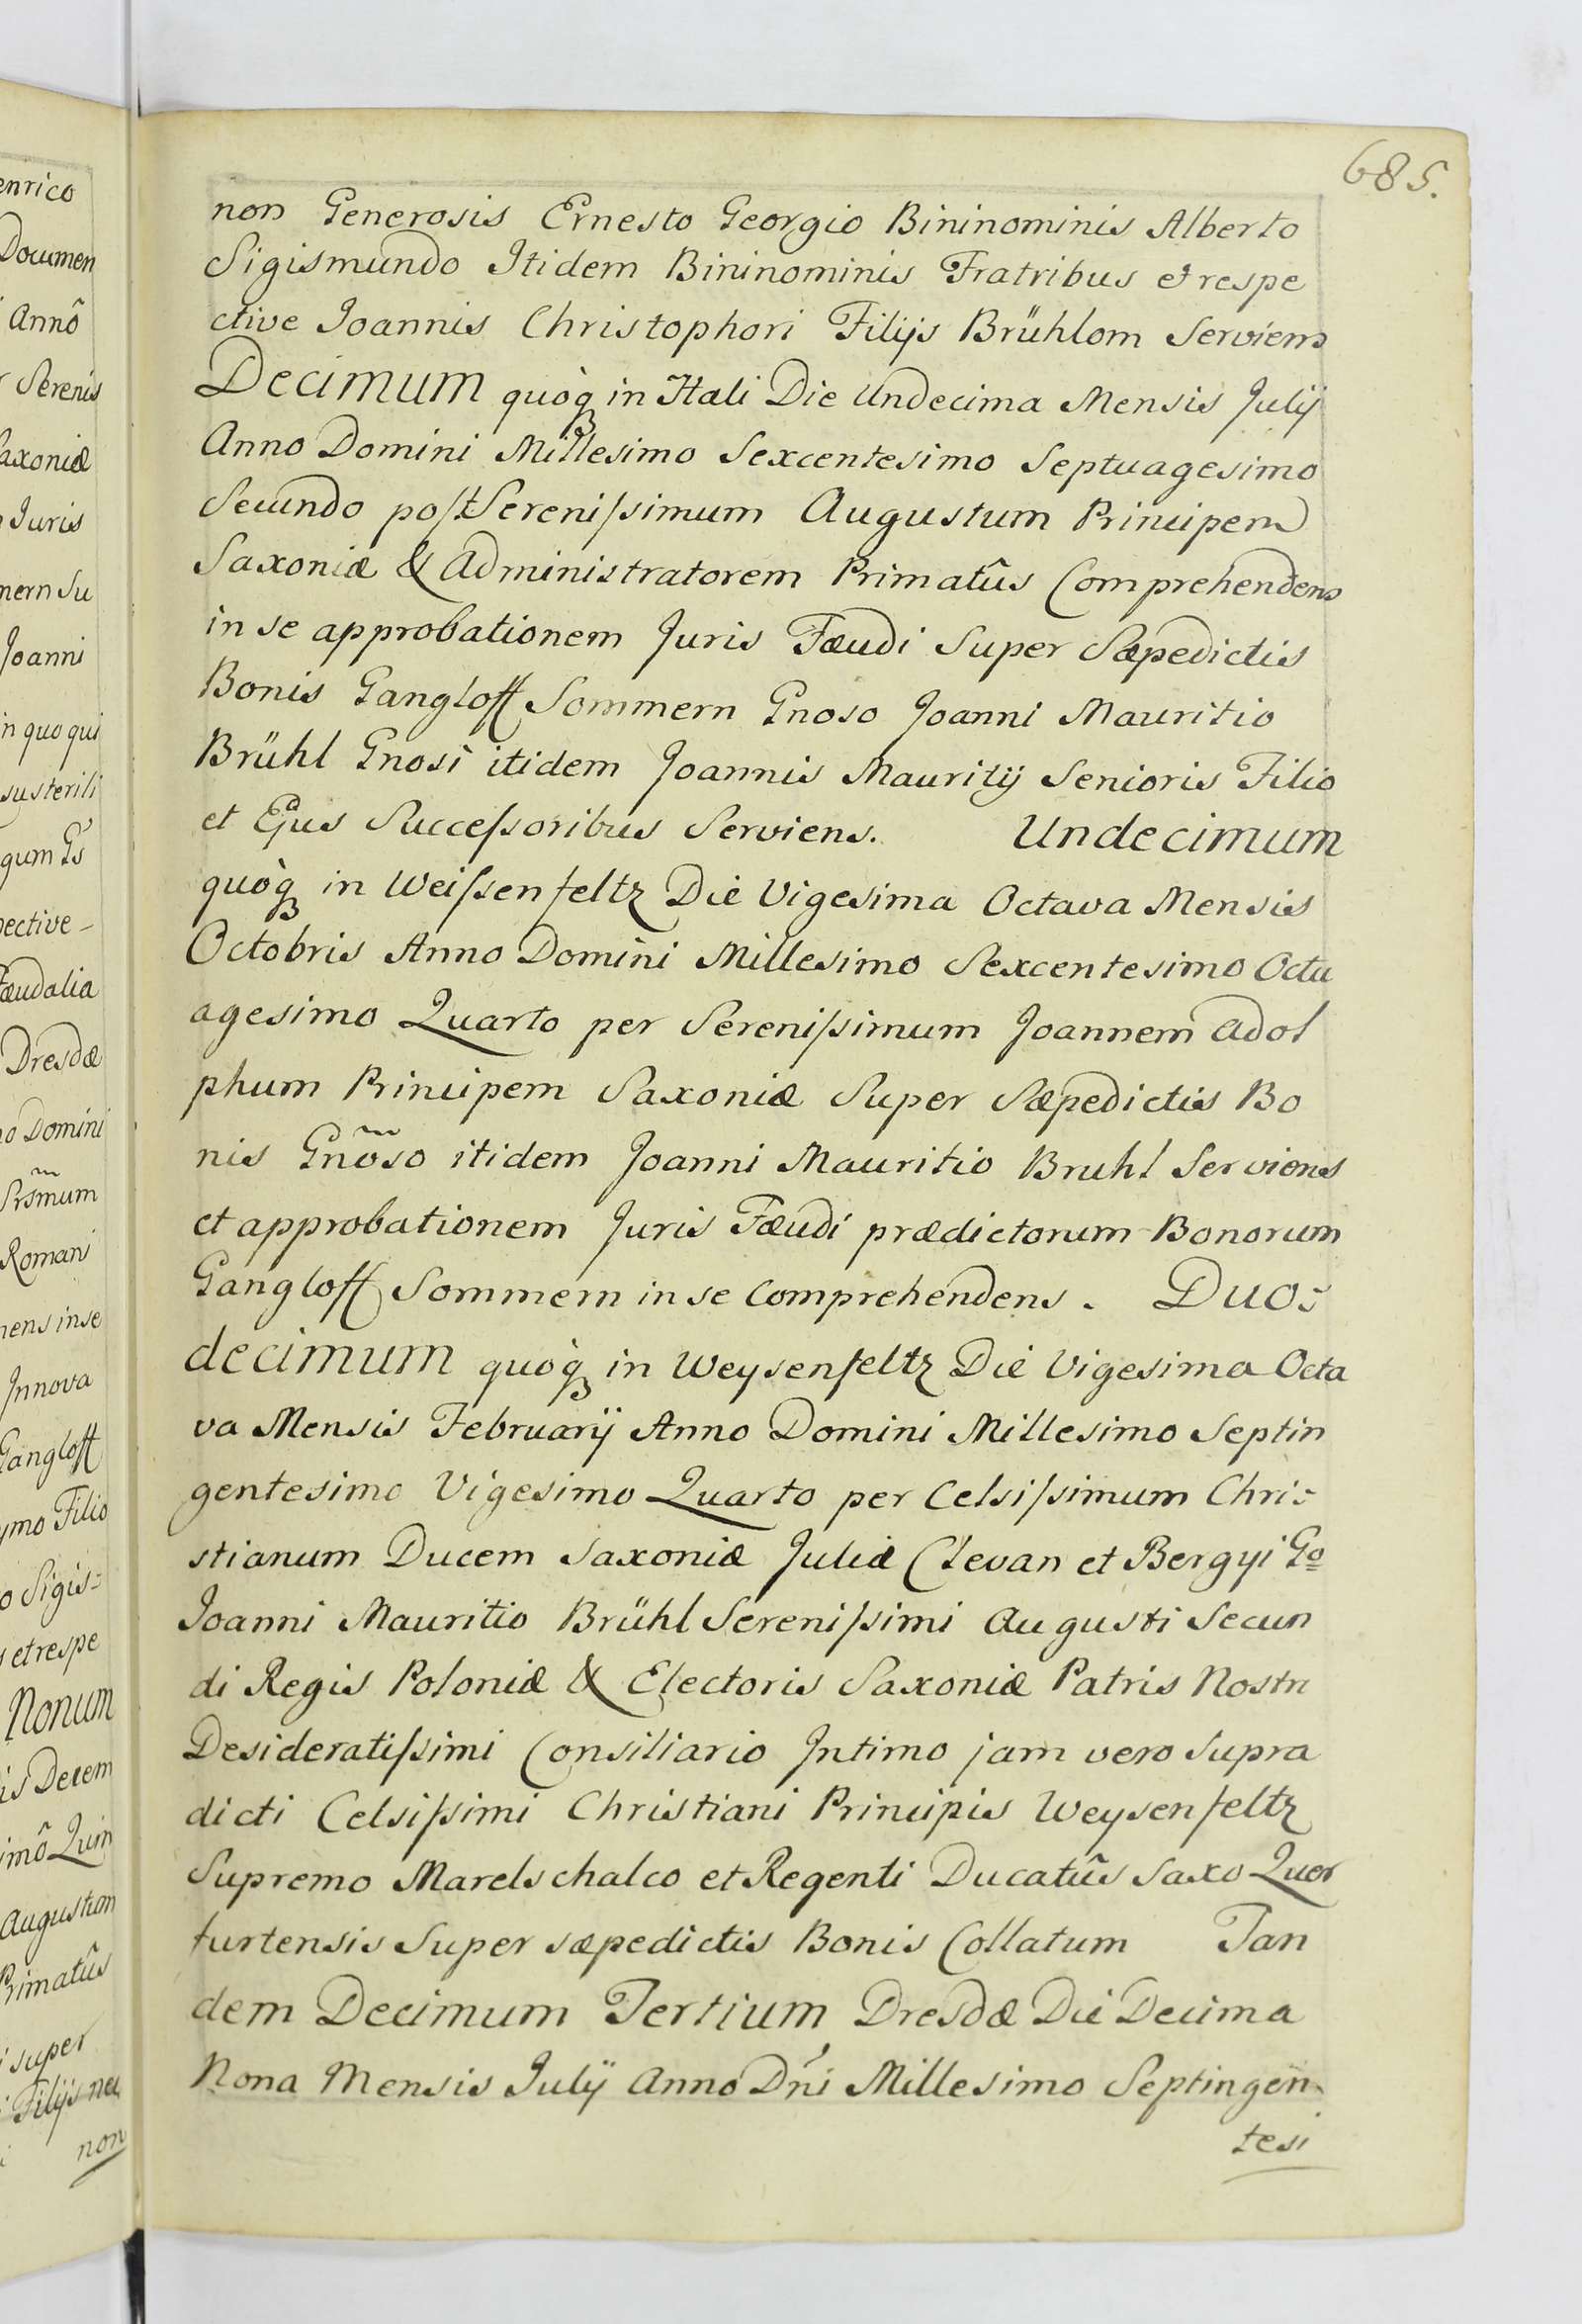 685.
non Generosis Ernesto Georgio Bininominis Alberto
Sigismundo Itidem Bininominis Fratribus et respe
ctive Joannis Christophori Filijs Brühlom Serviens
Decimum quòq in Hali Die Undecima Mensis Julij
Anno Domini Millesimo Sexcentesimo Septuagesimo
Secundo post Serenissimum Augustum Principem
Saxoniæ & Administratorem Primatûs Comprehendens
in se approbationem Juris Fæudi Super Sæpedictis
Bonis Gangloff Sommern Gnoso Joanni Mauritio
Brühl Gnosi itidem Joannis Mauritij Senioris Filio
et Ejus Successoribus Serviens. Undecimum
quòq in Weissenfeltz Die Vigesima Octava Mensis
Octobris Anno Domini Millesimo Sexcentesimo Octu
agesimo Quarto per Serenissimum Joannem Adol
phum Principem Saxoniæ Super Sæpedictis Bo
nis Gñoso itidem Joanni Mauritio Bruhl Serviens
et approbationem Juris Fæudi prædictorum Bonorum
Gangloff Sommern in se Comprehendens. Duo=
decimum quòq in Weysenfeltz Die Vigesima Octa
va Mensis Februarij Anno Domini Millesimo Septin
gentesimo Vigesimo Quarto per Celsissimum Chri=
stianum Ducem Saxoniæ Juliæ Clevan et Bergyi Go
Joanni Mauritio Brühl Serenissimi Augusti Secun
di Regis Poloniæ & Electoris Saxoniæ Patris Nostri
Desideratissimi Consiliario Intimo jam vero Supra
dicti Celsissimi Christiani Principis Weysenfeltz
Supremo Marelschalco et Regenti Ducatûs Saxo Quer
furtensis Super sæpedictis Bonis Collatum Tan
dem Decimum Tertium Dresdæ Die Decima
Nona Mensis Julij Anno Dñi Millesimo Septingen
tesi
enrico
Documen
Annô
Serenis
Saxoniæ
Juris
mern Su
Joanni
in quo qui
su sterili
gum Gs
pective
Fæudalia
Dresdæ
no Domini
Srsm̃um
Romani
nens in se
Innova
Gangloff
ymo Filio
o Sigis=
s et respe
Nonum
is Decem
imô Quin
Augustum
Primatûs
i super
Filijs nec
non